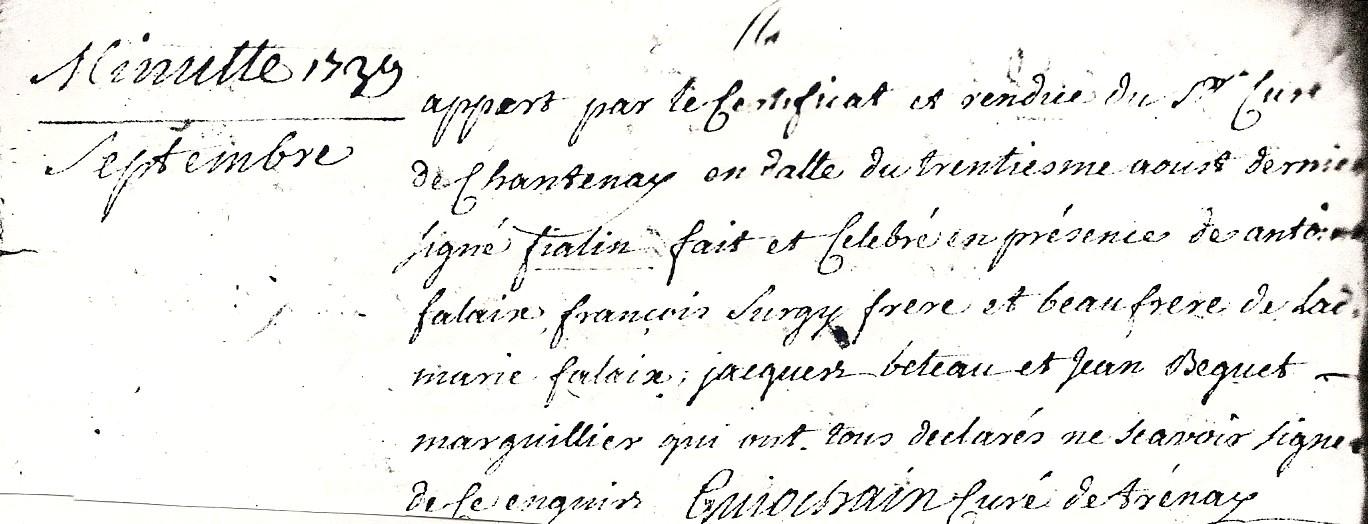 Minutte 1739
Septembre
appert par le Certificat et rendue du Sr Curé
de Chantenay en datte du trentiesme aoust dernie
signé fialin fait et Celebré en présence de antoi
falaix, françois Surgy frere et beaufrere de Lad
marie falaix, jacques beteau et Jean Beguet
marguillier qui ont tous declarés ne scavoir signe
de ce enquis Guiochain Curé de trénay